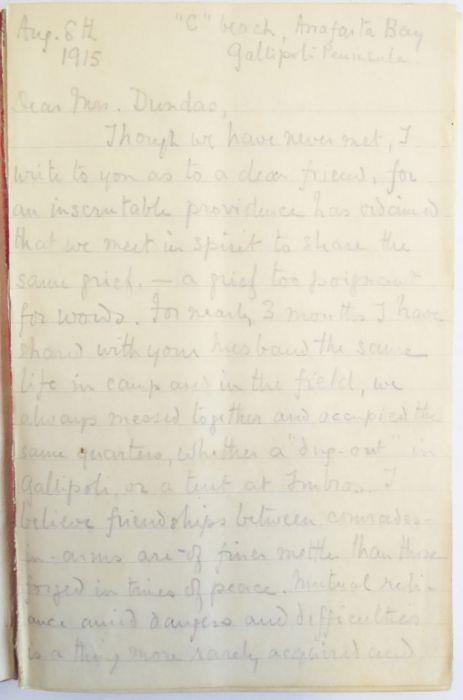 Aug. 8th "C" beach, Anafarta Bay
1915 Gallipoli Peninsula.
Dear Mrs. Dundas,
Though we have never met, I
write to you as to a dear friend, for
an inscrutable providence has ordained
that we meet in spirit to share the
same grief, — a grief too poignant
for words. For nearly 3 months I have
shared with your husband the same
life in camp and in the field, we
always messed together and occupied the
same quarters, whether a "dug-out" in
Gallipoli, or a tent at Imbros. I
believe friendships between comrades-
in-arms are of finer mettle than those
forged in times of peace. Mutual reli-
ance amid dangers and difficulties
is a thing more rarely acquired and